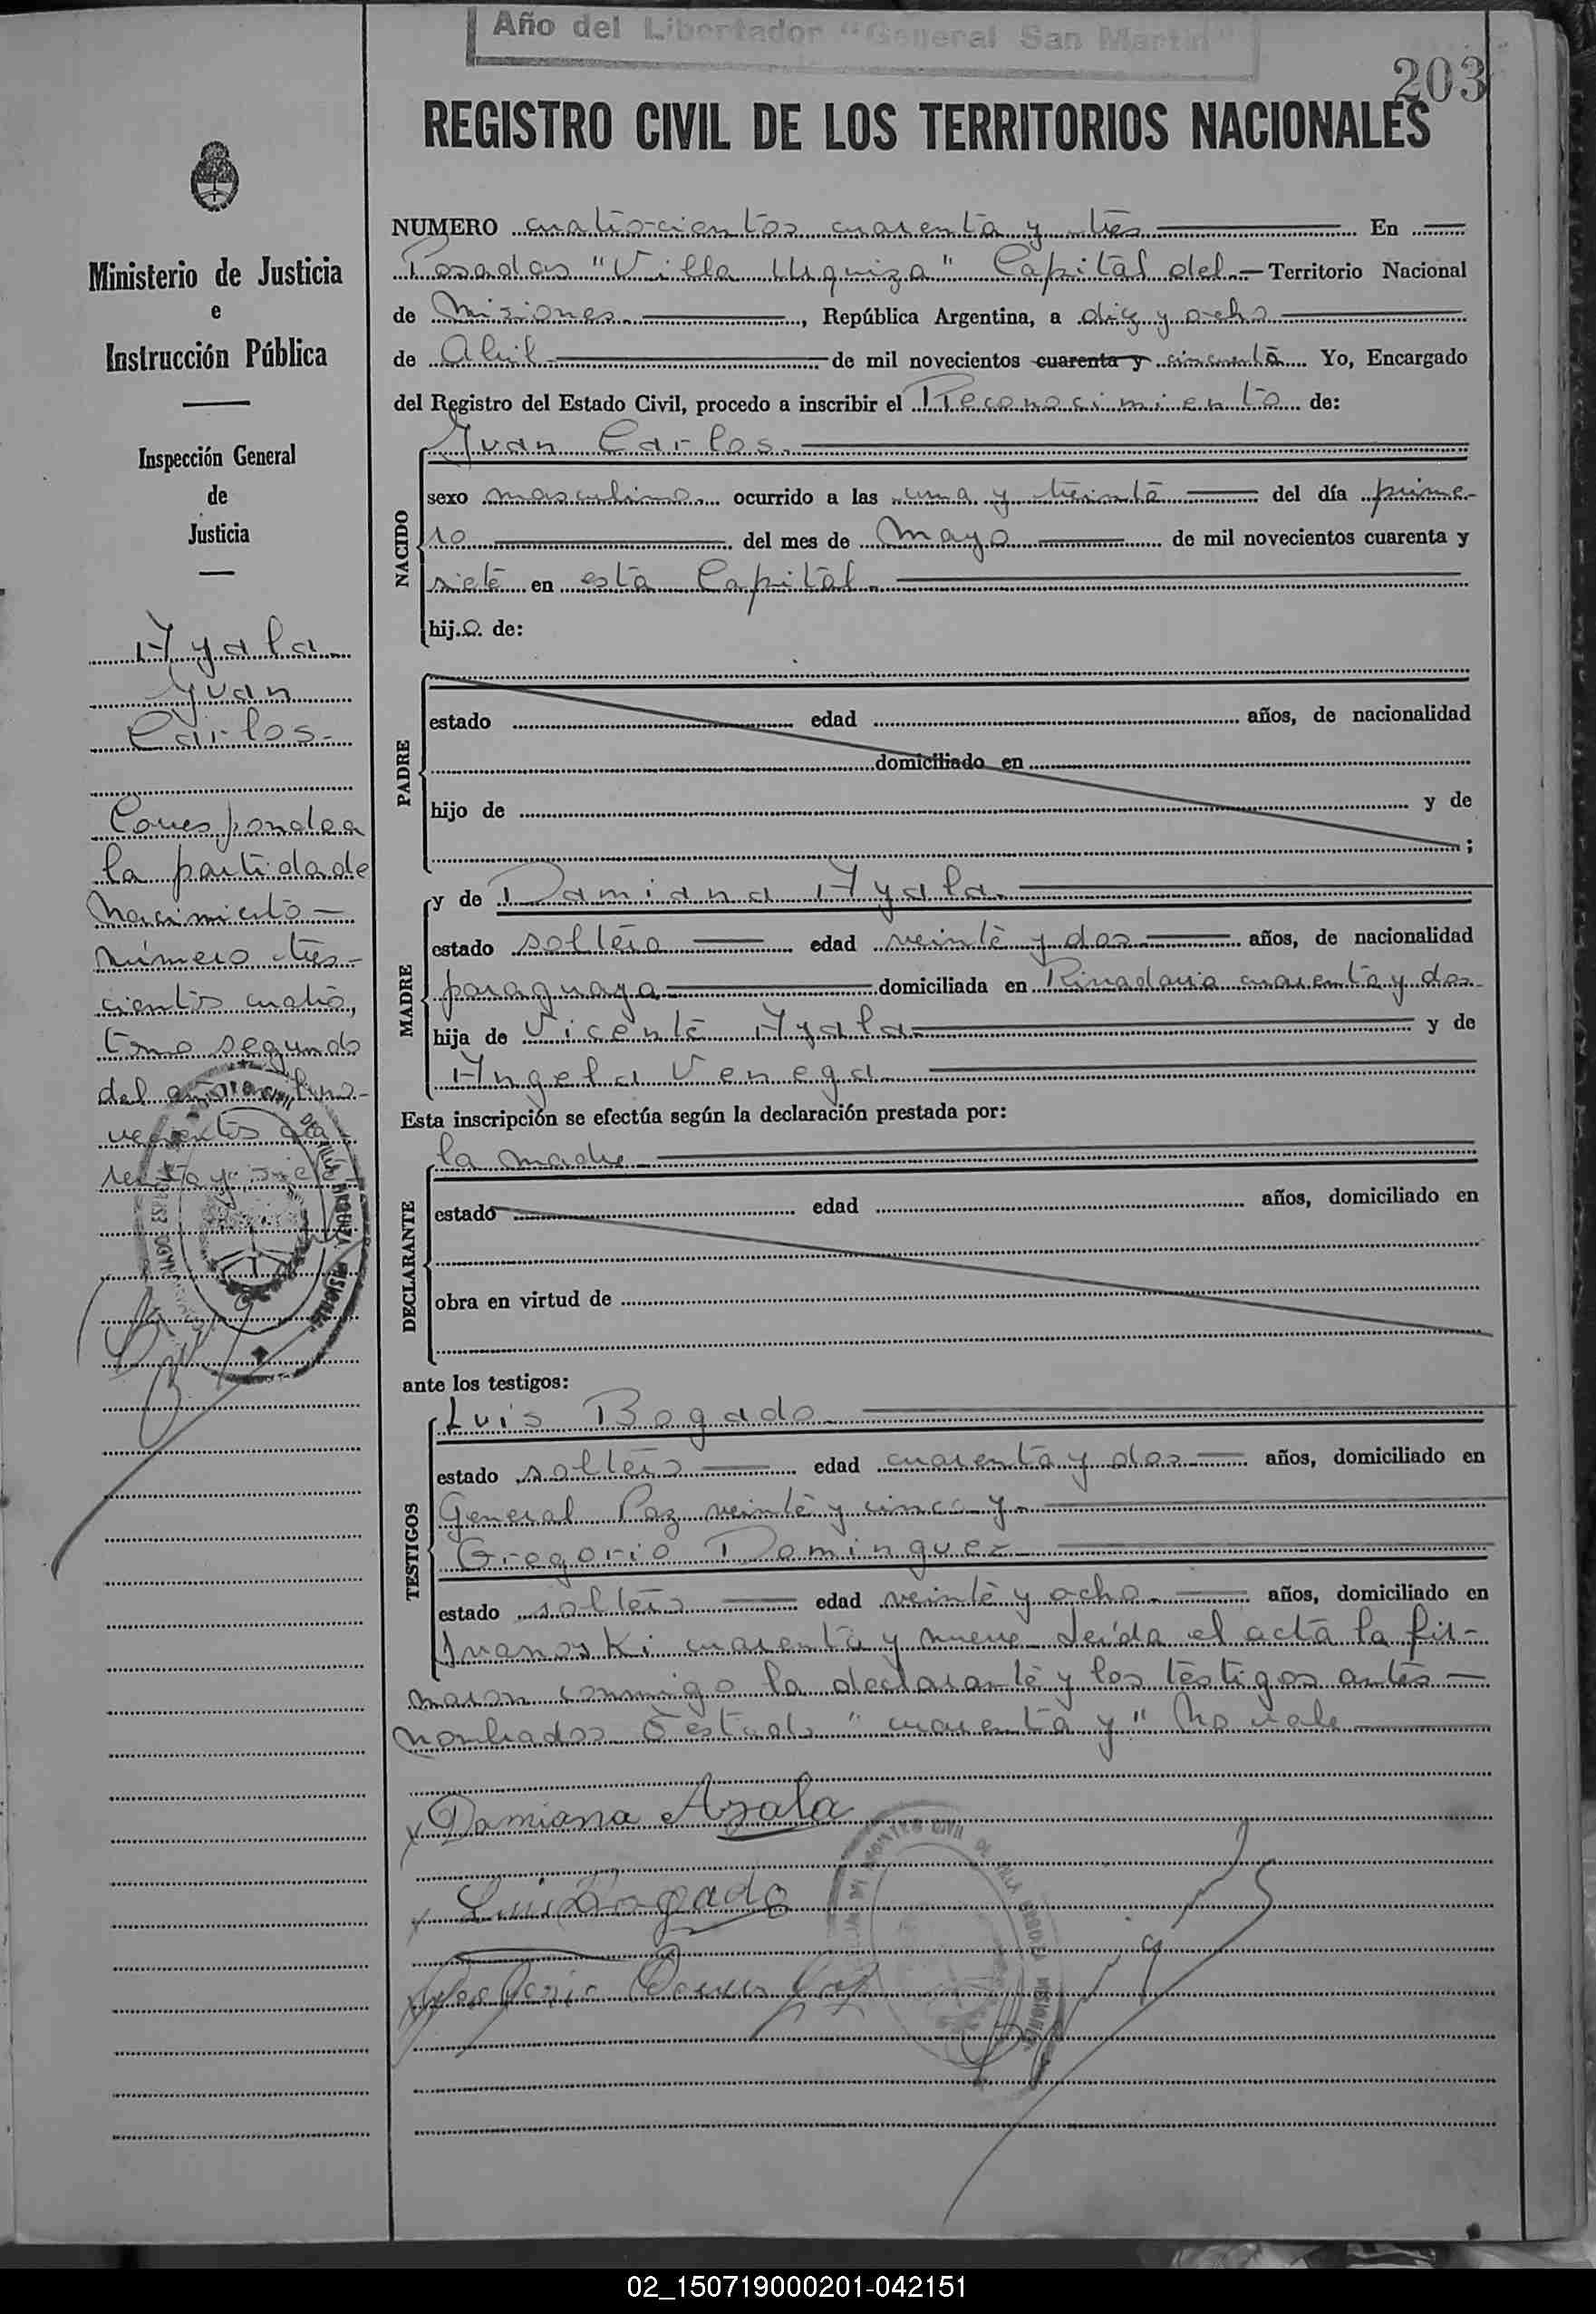 Año del Libertador "General San Martín"
203
REGISTRO CIVIL DE LOS TERRITORIOS NACIONALES
Ministerio de Justicia
e
Instrucción Pública
Inspección General
de
Justicia
Ayala
Juan
Carlos
Corresponde a
la partida de
Nacimiento
número tres-
cientos cuatro,
tomo segundo
del año mil no-
vecientos cua
renta y siete
NUMERO cuatrocientos cuarenta y tres En
Posadas "Villa Urquiza" Capital del Territorio Nacional
de Misiones, República Argentina, a diez y ocho
de Abril de mil novecientos cuarenta y cincuenta Yo, Encargado
del Registro del Estado Civil, procedo a inscribir el Reconocimiento de:
NACIDO
Juan Carlos
sexo masculino ocurrido a las una y treinta del día prime-
ro del mes de Mayo de mil novecientos cuarenta y
siete en esta Capital
hijo de:
PADRE
estado edad años, de nacionalidad
domiciliado en
hijo de y de
;
MADRE
y de Damiana Ayala
estado soltera edad veinte y dos años, de nacionalidad
paraguaya domiciliada en Rivadavia cuarenta y dos
hija de Vicente Ayala y de
Angela Venega
Esta inscripción se efectúa según la declaración prestada por:
DECLARANTE
la madre
estado edad años, domiciliado en
obra en virtud de
ante los testigos:
TESTIGOS
Luis Bogado
estado soltero edad cuarenta y dos años, domiciliado en
General Paz veinte y cinco y
Gregorio Dominguez
estado soltero edad veinte y ocho años, domiciliado en
Ivanoski cuarenta y nueve Leída el acta la fir-
maron conmigo la declarante y los testigos antes
nombrados Testado "cuarenta y" No vale
Damiana Ayala
Luis Bogado
02_150719000201-042151